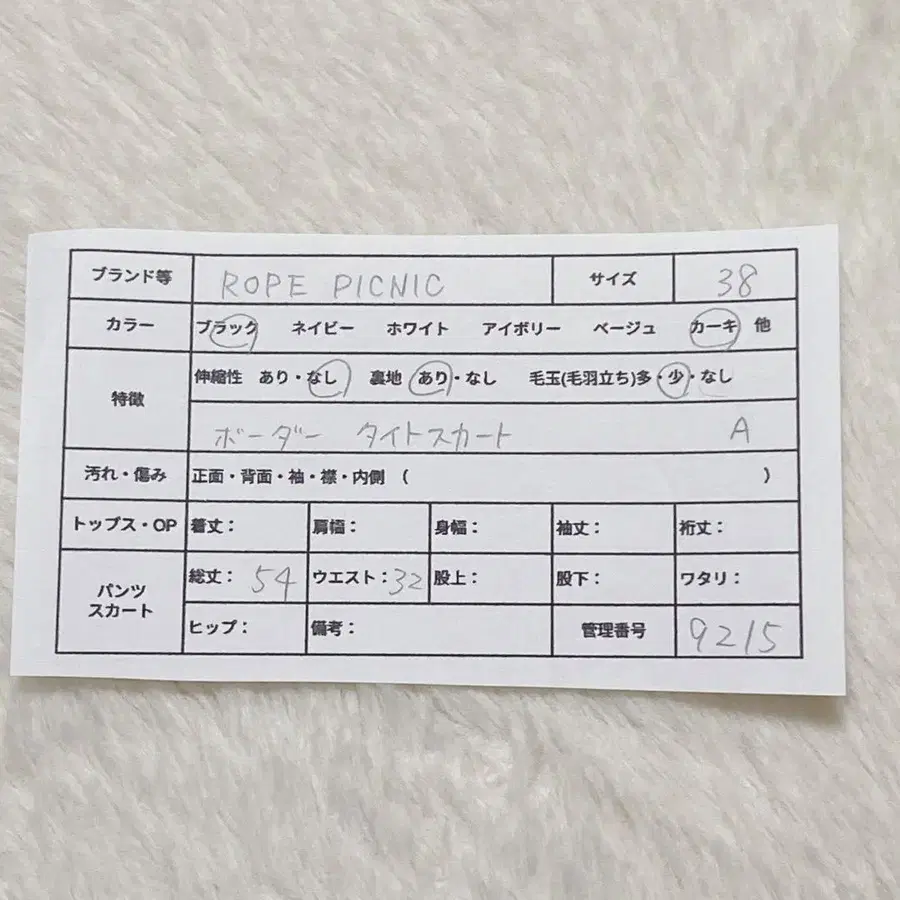 ブランド等 ROPE PICNIC サイズ 38
カラー ブラック ネイビー ホワイト アイボリー ベージュ カーキ 他
特徴 伸縮性 あり・なし 裏地 あり・なし 毛玉(毛羽立ち)多・少・なし
ボーダー タイトスカート A
汚れ・傷み 正面・背面・袖・襟・内側 ( )
トップス・OP 着丈: 肩幅: 身幅: 袖丈: 裄丈:
パンツ スカート 総丈: 54 ウエスト:32 股上: 股下: ワタリ:
ヒップ: 備考: 管理番号 9215